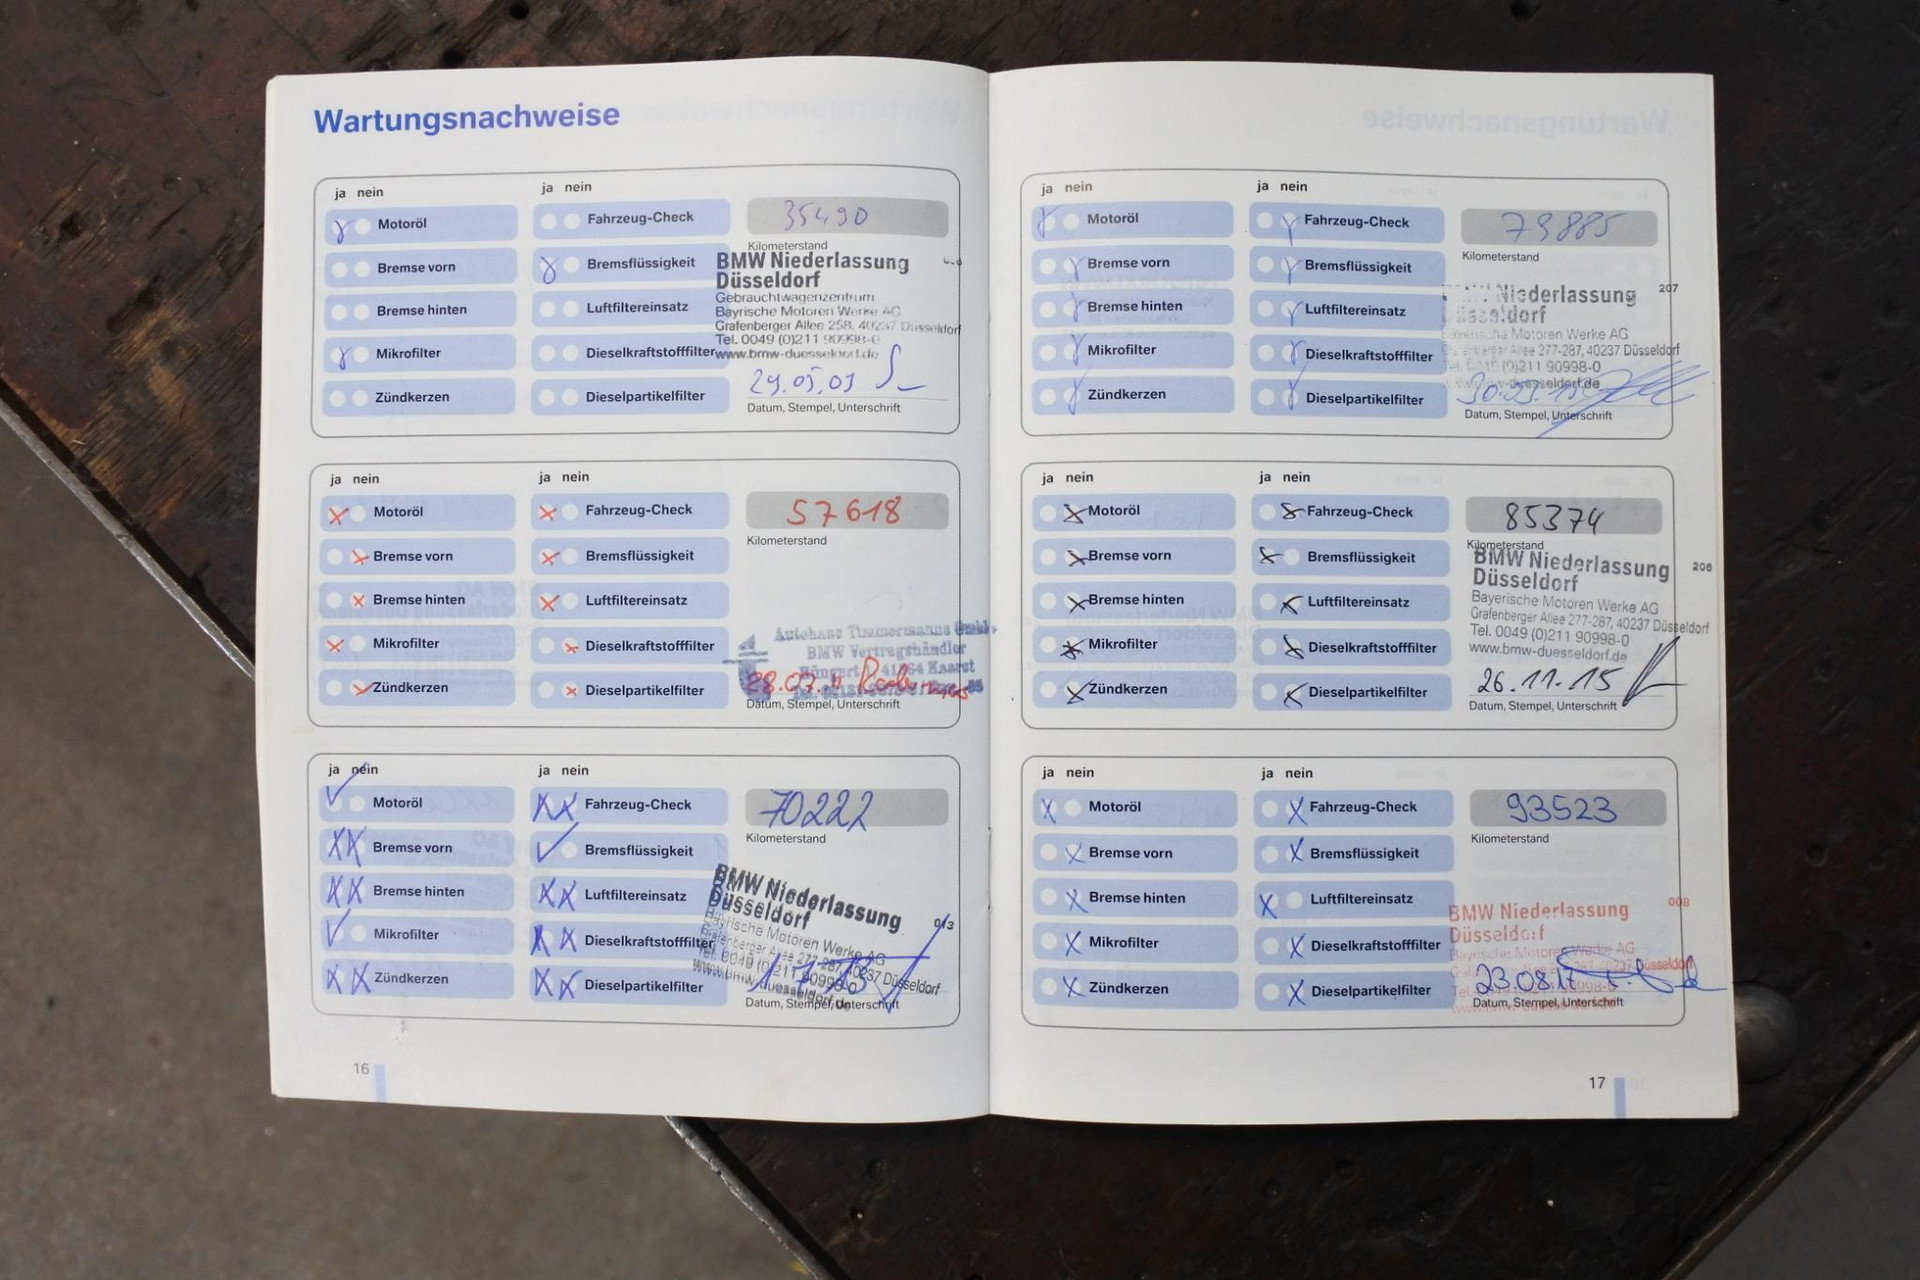 Wartungsnachweise
ja nein
ja nein
Motoröl
Fahrzeug-Check
35490
Kilometerstand
Bremse vorn
Bremsflüssigkeit
BMW Niederlassung
Düsseldorf
Bremse hinten
Luftfiltereinsatz
Gebrauchtwagenzentrum
Bayrische Motoren Werke AG
Grafenberger Allee 258, 40237 Düsseldorf
Tel. 0049 (0)211 90998-0
Mikrofilter
Dieselkraftstofffilter
www.bmw-duesseldorf.de
29.05.09
Zündkerzen
Dieselpartikelfilter
Datum, Stempel, Unterschrift
ja nein
ja nein
Motoröl
Fahrzeug-Check
57618
Kilometerstand
Bremse vorn
Bremsflüssigkeit
Bremse hinten
Luftfiltereinsatz
Autohaus Timmermanns GmbH
BMW Vertragshändler
Mikrofilter
Dieselkraftstofffilter
41564 Kaarst
Zündkerzen
Dieselpartikelfilter
Datum, Stempel, Unterschrift
ja nein
ja nein
Motoröl
Fahrzeug-Check
70222
Kilometerstand
Bremse vorn
Bremsflüssigkeit
Bremse hinten
Luftfiltereinsatz
BMW Niederlassung
Düsseldorf
013
Bayrische Motoren Werke AG
Mikrofilter
Dieselkraftstofffilter
Grafenberger Allee 277-287, 40237 Düsseldorf
Tel. 0049 (0)211 90998-0
www.bmw-duesseldorf.de
Zündkerzen
Dieselpartikelfilter
Datum, Stempel, Unterschrift
16
ja nein
ja nein
Motoröl
Fahrzeug-Check
79885
Kilometerstand
Bremse vorn
Bremsflüssigkeit
207
Niederlassung
Düsseldorf
Bremse hinten
Luftfiltereinsatz
Bayerische Motoren Werke AG
Allee 277-287, 40237 Düsseldorf
Tel. 0049 (0)211 90998-0
Mikrofilter
Dieselkraftstofffilter
www.bmw-duesseldorf.de
Zündkerzen
Dieselpartikelfilter
Datum, Stempel, Unterschrift
ja nein
ja nein
Motoröl
Fahrzeug-Check
85374
Kilometerstand
Bremse vorn
Bremsflüssigkeit
BMW Niederlassung
206
Düsseldorf
Bremse hinten
Luftfiltereinsatz
Bayerische Motoren Werke AG
Grafenberger Allee 277-287, 40237 Düsseldorf
Tel. 0049 (0)211 90998-0
Mikrofilter
Dieselkraftstofffilter
www.bmw-duesseldorf.de
26.11.15
Zündkerzen
Dieselpartikelfilter
Datum, Stempel, Unterschrift
ja nein
ja nein
Motoröl
Fahrzeug-Check
93523
Kilometerstand
Bremse vorn
Bremsflüssigkeit
Bremse hinten
Luftfiltereinsatz
008
BMW Niederlassung
Düsseldorf
Mikrofilter
Dieselkraftstofffilter
Werke AG
40237 Düsseldorf
23.08.17
Zündkerzen
Dieselpartikelfilter
Datum, Stempel, Unterschrift
17